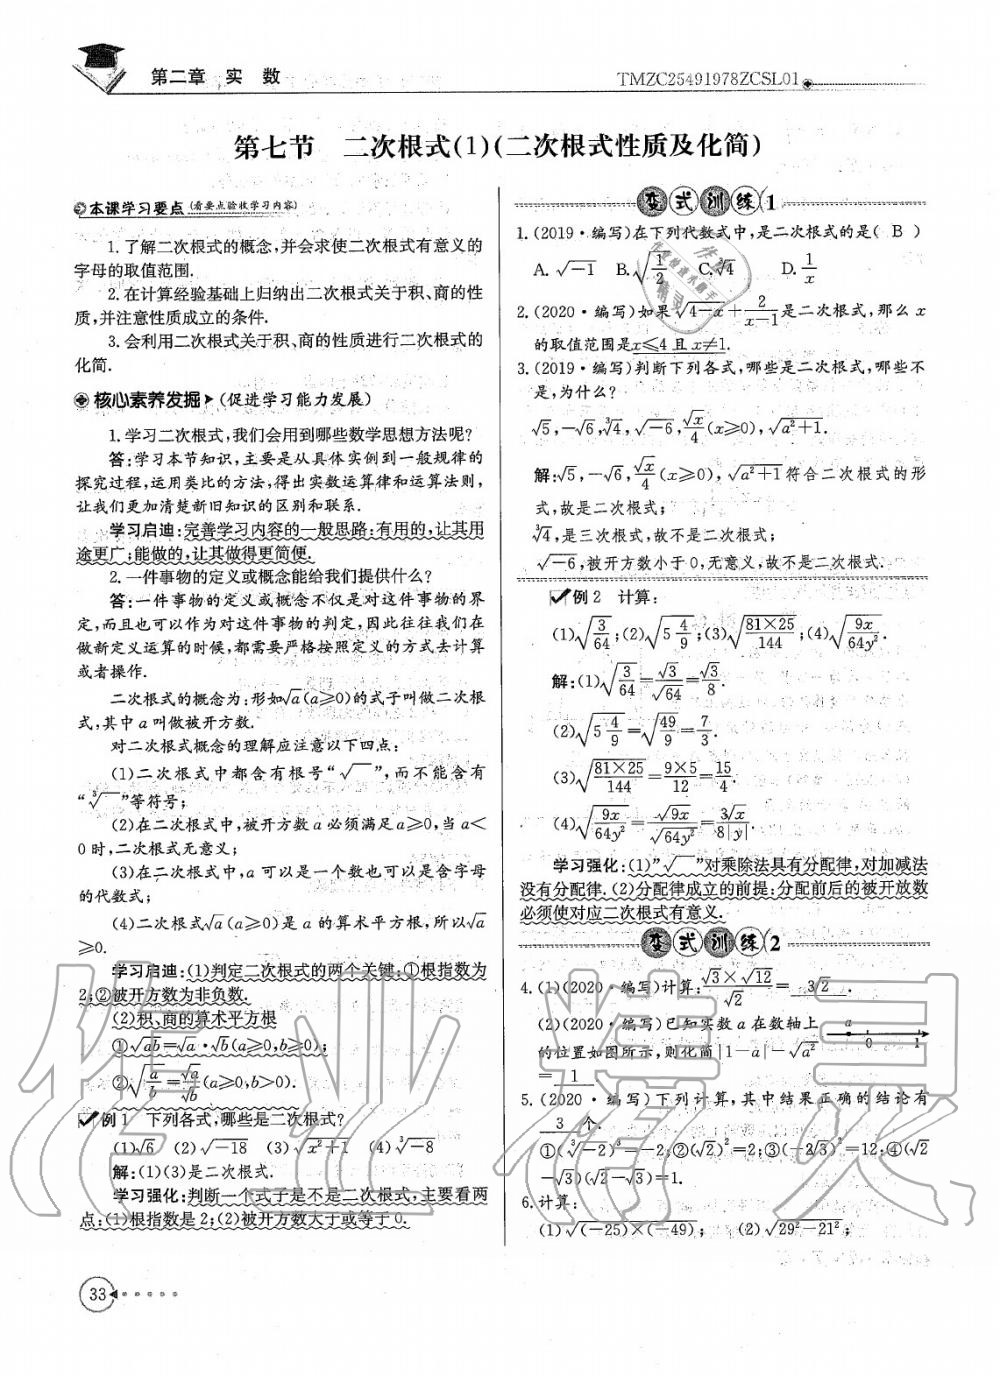 第二章 实 数
TMZC25491978ZCSL01
第七节 二次根式(1)(二次根式性质及化简)
本课学习要点(看要点验收学习内容)
1.了解二次根式的概念,并会求使二次根式有意义的
字母的取值范围.
2.在计算经验基础上归纳出二次根式关于积、商的性
质,并注意性质成立的条件.
3.会利用二次根式关于积、商的性质进行二次根式的
化简.
核心素养发掘(促进学习能力发展)
1.学习二次根式,我们会用到哪些数学思想方法呢?
答:学习本节知识,主要是从具体实例到一般规律的
探究过程,运用类比的方法,得出实数运算律和运算法则,
让我们更加清楚新旧知识的区别和联系.
学习启迪:完善学习内容的一般思路:有用的,让其用
途更广;能做的,让其做得更简便.
2.一件事物的定义或概念能给我们提供什么?
答:一件事物的定义或概念不仅是对这件事物的界
定,而且也可以作为对这件事物的判定,因此往往我们在
做新定义运算的时候,都需要严格按照定义的方式去计算
或者操作.
二次根式的概念为:形如√a(a⩾0)的式子叫做二次根
式,其中a叫做被开方数.
对二次根式概念的理解应注意以下四点:
(1)二次根式中都含有根号“√ ”,而不能含有
“∛ ”等符号;
(2)在二次根式中,被开方数a必须满足a⩾0,当a<
0时,二次根式无意义;
(3)在二次根式中,a可以是一个数也可以是含字母
的代数式;
(4)二次根式√a(a⩾0)是a的算术平方根,所以√a
⩾0.
学习启迪:(1)判定二次根式的两个关键:①根指数为
2;②被开方数为非负数.
(2)积、商的算术平方根
①√(ab)=√a·√b(a⩾0,b⩾0);
②√(a/b)=√a/√b(a⩾0,b>0).
例1 下列各式,哪些是二次根式?
(1)√6 (2)√(-18) (3)√(x²+1) (4)∛(-8)
解:(1)(3)是二次根式.
学习强化:判断一个式子是不是二次根式,主要看两
点:(1)根指数是2;(2)被开方数大于或等于0.
变式训练1
1.(2019·编写)在下列代数式中,是二次根式的是( B )
A.√(-1) B.√(1/2) C.∛4 D.1/x
2.(2020·编写)如果√(4-x)+2/(x-1)是二次根式,那么x
的取值范围是x⩽4且x≠1.
3.(2019·编写)判断下列各式,哪些是二次根式,哪些不
是,为什么?
√5,-√6,∛4,√(-6),√x/4(x⩾0),√(a²+1).
解:√5,-√6,√x/4(x⩾0),√(a²+1)符合二次根式的形
式,故是二次根式;
∛4,是三次根式,故不是二次根式;
√(-6),被开方数小于0,无意义,故不是二次根式.
例2 计算:
(1)√(3/64);(2)√(5 4/9);(3)√(81×25/144);(4)√(9x/64y²).
解:(1)√(3/64)=√3/√64=√3/8.
(2)√(5 4/9)=√(49/9)=7/3.
(3)√(81×25/144)=9×5/12=15/4.
(4)√(9x/64y²)=√(9x)/√(64y²)=3√x/8|y|.
学习强化:(1)”√ ”对乘除法具有分配律,对加减法
没有分配律.(2)分配律成立的前提:分配前后的被开放数
必须使对应二次根式有意义.
变式训练2
4.(1)(2020·编写)计算:√3×√12/√2= 3√2 .
(2)(2020·编写)已知实数a在数轴上
a 0 1
的位置如图所示,则化简|1-a|-√a²
= 1
5.(2020·编写)下列计算,其中结果正确的结论有
3 个.
①(∛-2)³=-2;②(√2)²=2;③(-2√3)²=12;④(√2
-√3)(√2-√3)=1.
6.计算:
(1)√((-25)×(-49)); (2)√(29²-21²);
33
作业精灵